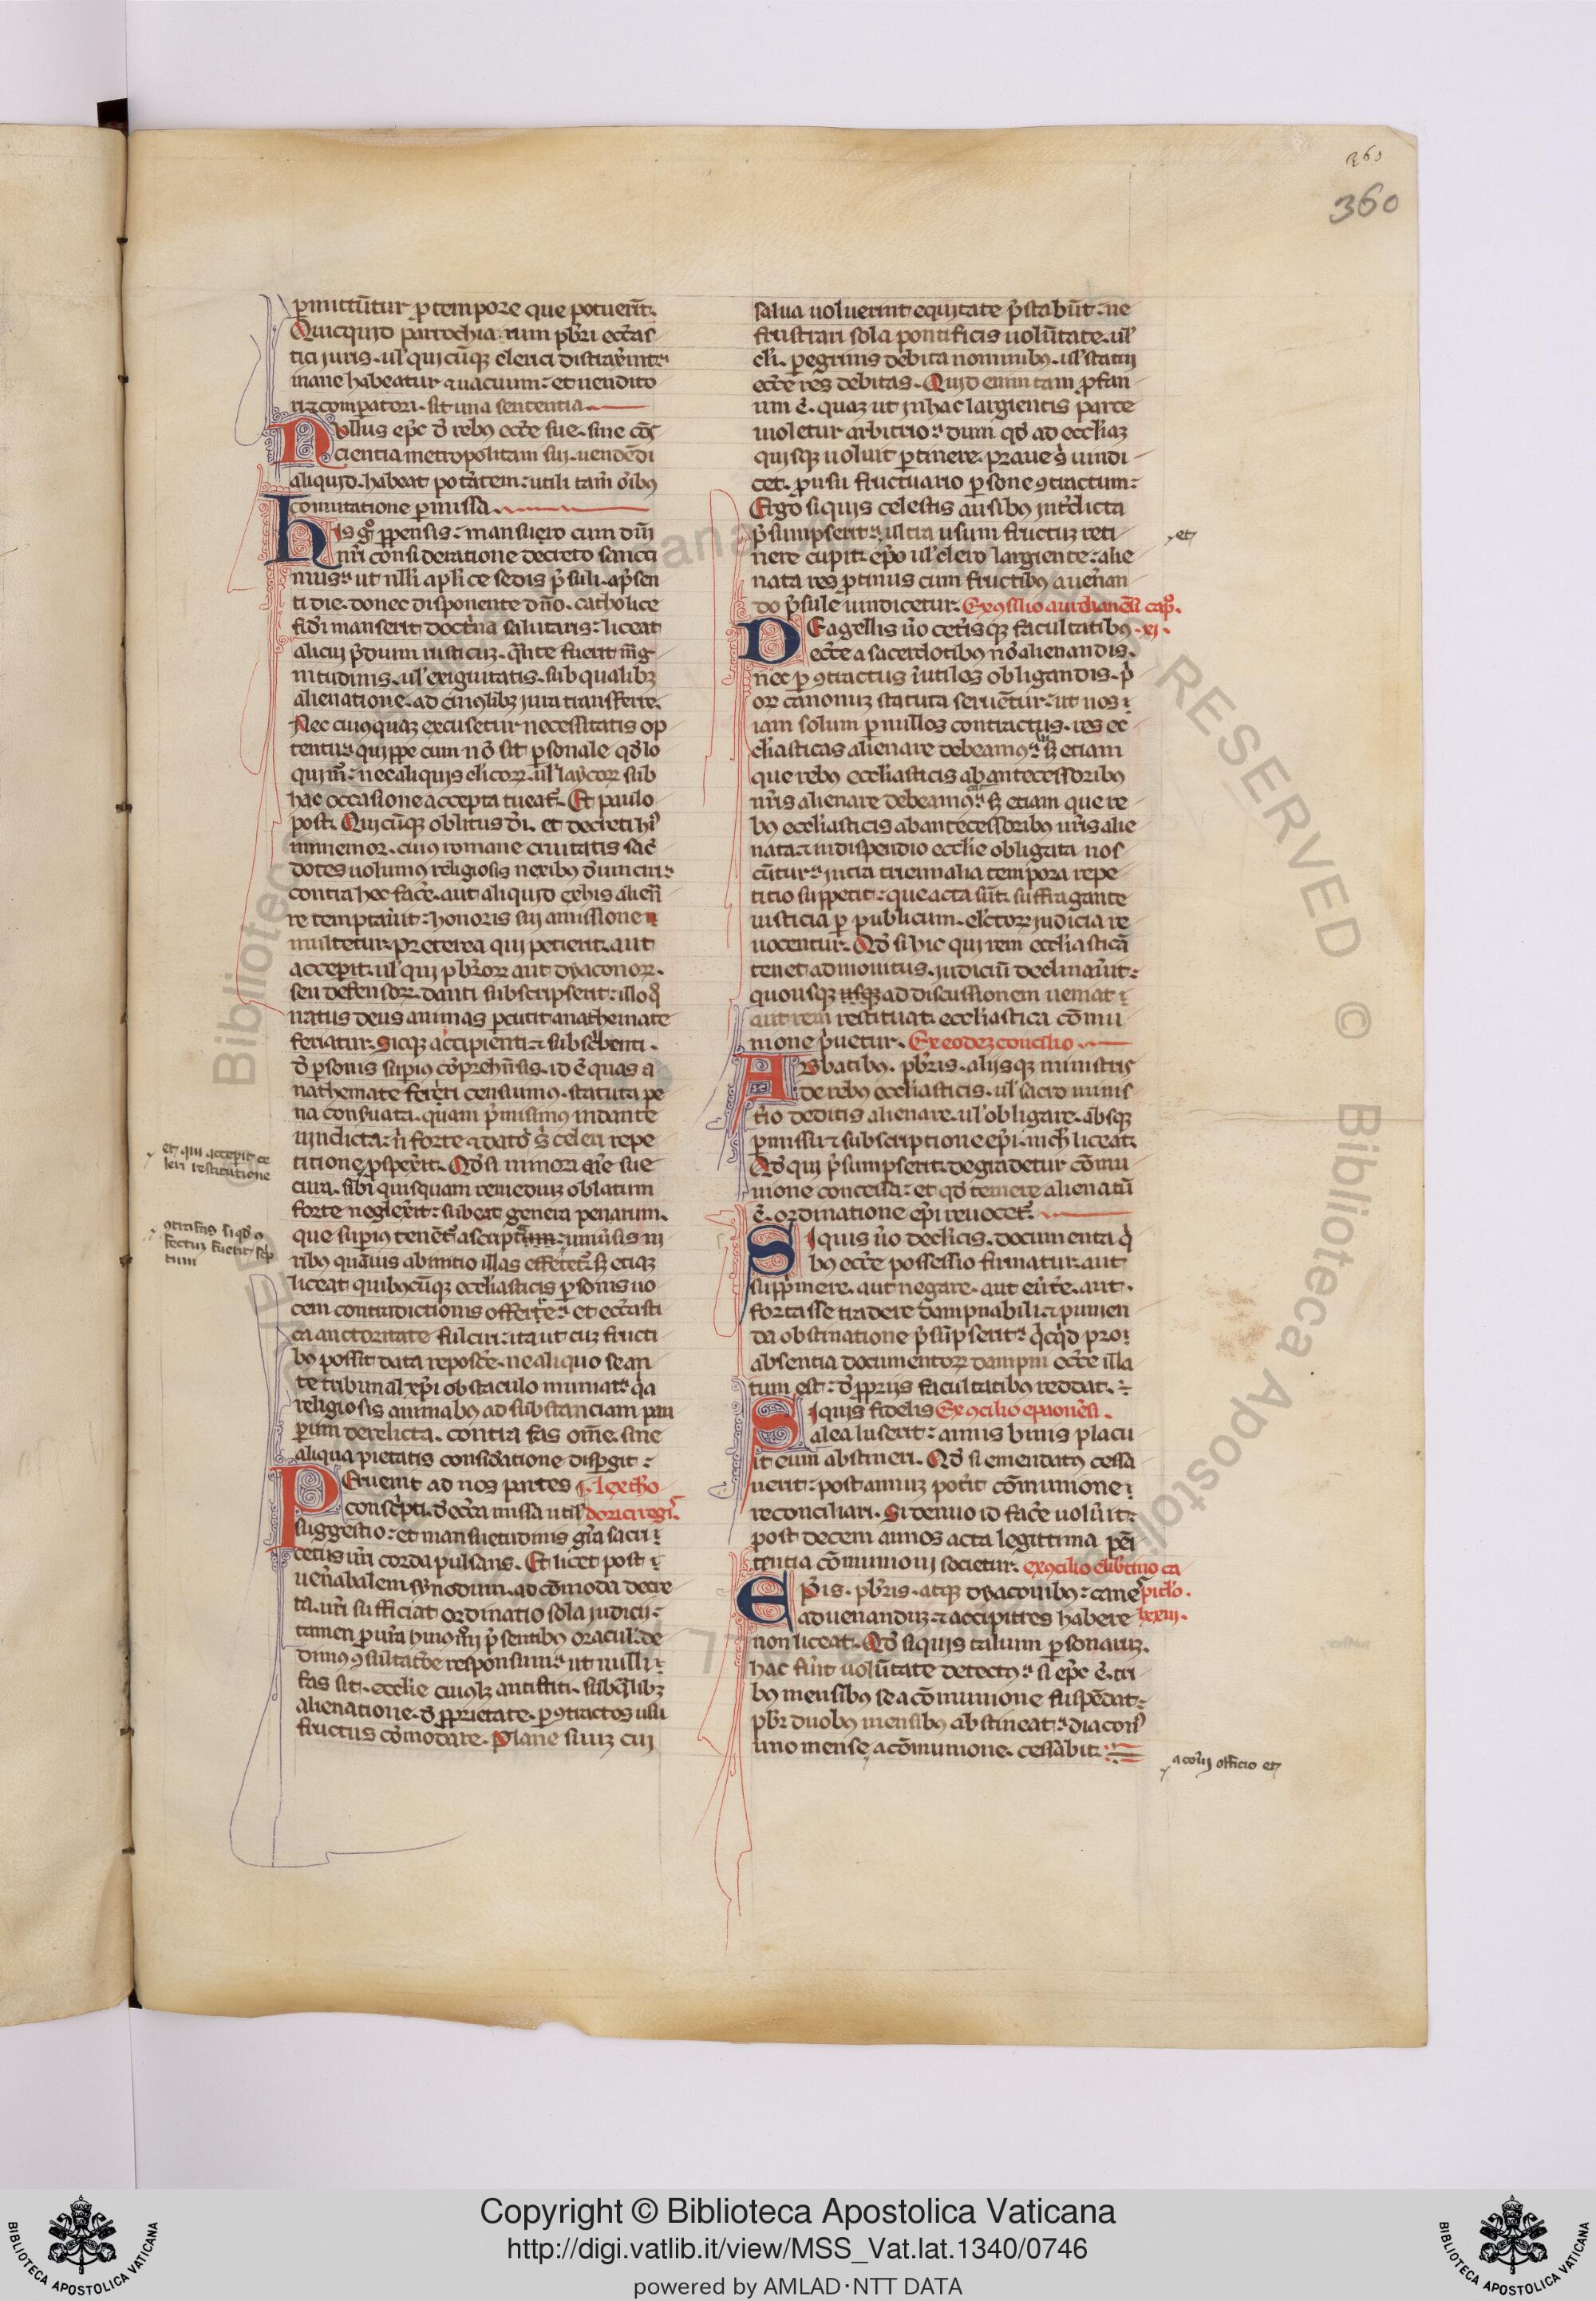 360
360
ꝑmittũtur ꝓ tempore que potuerĩt.
Quicquid parrochia rum pƀri eccᷓas
tici iuris. ul' quicũqꝫ clerici distraxerint
mane habeatur ⁊ uacuum: et uendito
ri ⁊ comparatori. sit una sententia.
Nullus ep̃c d̃ rebꝰ ecc̃e sue. sine cõs
cientia metropolitani sui. uendẽdi
aliquid. habeat potãtem: utili tam̃ oĩbꝰ
comutatione ꝑmissa.
His gͦ ꝑpensis: mansuero cum dm̃
nr̃i consideratione decreto sancci
mus: ut nlli apl'ice sedis p̃suli. a p̃sen
ti die. donec disponente dño. catholice
fidi manserit doctrina salutaris: liceat
alicui p̃dium rusticuꝫ. q̃nte fuerit m̃g
nitudinis. ul' exiguitatis. sub qualibꝫ
alienatione. ad cuiꝰlibꝫ iura transferre.
Nec cuiꝰquaꝫ excusetur necessitatis op
tentu: quippe cum nõ sit ꝑsonale qđ lo
quimͬ: nec aliquis cl'icoꝝ. ul' laycoꝝ sub
hac occasione accepta tueatͬ. Et paulo
post. Quicũqꝫ oblitus di. et decreti hiꝰ
inmemor. cuiꝰ romane ciuitatis sac̃
dotes uolumꝰ religiosis nexibꝰ deuinciri:
contra hec fac̃e. aut aliquid ex his alien̄
re temptau̾it: honoris sui amissione
multetur. preterea qui petierit. aut
accepit. ul' qui pƀroꝝ aut dyaconoꝝ.
seu defensoꝝ. danti subscripserit: illo q̊
natus deus animas ꝑcutit anathemate
feriatur. Sicqꝫ accipienti. ⁊ subscͥbenti.
d̃ ꝑsonis supiꝰ cõprehẽsis. id ẽ quas a
nathemate ferĩti censuimꝰ. statuta pe
na conseruata. quam p̃misimꝰ in dante
uindicta: n̾ forte ⁊ datoͬ sͥ celeri repe
titione ꝓspexerit. Qđ si minori aĩe sue
cura. sibi quisquam remediuꝫ oblatum
forte neglexerit: subeat genera penarum.
que supiꝰ tenẽtͬ ascripta: uniu̾sis iu
ribꝰ quãuis ab initio illas effetetͬ. sꝫ etiaꝫ
liceat quibꝰcũqꝫ eccl'iasticis ꝑsonis uo
cem contradictionis offerre: et ecc̃asti
ca auctoritate fulciri: ita ut cuꝫ fructi
bꝰ possit data reposc̃e. ne aliquo se an
te tribunal xp̃i obstaculo muniat: q̃a
religiosis animabꝰ ad substanciam pau
ꝑum derelicta. contra fas om̃e. sine
aliqua pietatis consid̃atione disꝑgit:
Peruenit ad nos patres ¶. Lex tho
conscͥpti. d̃ ecc̃ia missa utilͥ dorici regͥs.
suggestio: et mansuetudinis gr̃a sacri
cetus ur̃i corda pulsans. Et licet post
uen̾abalem synodum. ad cõmoda decre
ta. ur̃i sufficiat ordinatio sola iudicii:
tamen ꝓ ur̃a hui'ꝰmõi p̃sentibꝰ oracul' de
dimꝰ ꝯsultac̃õe responsum: ut nulli
fas sit. eccl'ie cuiꝰlꝫ antistiti. sub q̃libꝫ
alienatione. d̃ ꝓprietate. ꝑ ꝯtractos usu
fructus cõmodare. Plane suuꝫ cui
et qui accepit. ce
leri restitutione
ꝯtra fas si qđ ꝯ
fectum fuerit scͥp
tum
salua uoluerint equitate p̃stabũt: ne
frustrari sola pontificis uolũtate. ul'
cl'i. ꝑegrinis debita nominibꝰ. ul' statui
ecc̃e res debitas. Quid enim tam ꝓfan
um ẽ. quaꝫ ut in hac largientis parte
uioletur arbitrio: dum qđ ad eccl'iaꝫ
quisqꝫ uoluit ꝑtinere. praue sͥ uindi
cet. ꝓ usu fructuario ꝑsone ꝯtractum:
Ergo si quis celestis ausibꝰ int̾dicta
p̃sumpserit: ultra usum fructuꝫ reti
nere cupit: ep̃o ul' clero largiente: alie
nata res ꝓtinus cum fructibꝰ a uen̾an
do p̃sule uindicetur. Ex ꝯsilio aurelianẽsi capͦ.
De agellis u̾o cet̾isqꝫ facultatibꝰ. xi.
ecc̃e a sacerdotibꝰ nõ alienandis.
nec ꝑ ꝯtractus ĩutiles obligandis. pͥ
oꝝ canonuꝫ statuta seruẽtur: ut nos
iam solum ꝑ nullos contractus. res ec
cl'iasticas alienare debeamꝰ: sꝫ etiam
que rebꝰ eccl'iasticis ab antecessoribꝰ
nr̃is alienare debeamꝰ: sꝫ etiam que re
bꝰ eccl'iasticis ab antecessoribꝰ ur̃is alie
nata. ⁊ in dispendio eccl'ie obligata nos
cũtur: intra triennalia tempora repe
titio suppetit: que acta sũt. suffragante
iusticia ꝑ publicum. electoꝝ iudicia re
uocentur. Qđ si hic qui rem eccl'iasticã
tenet admonitus. iudiciũ declinau̾it:
quousqꝫ ad discussionem ueniat
aut rem restituat. eccl'iastica cõmu
nione p̃uetur. Ex eodeꝫ concilio.
Abbatibꝰ. pƀris. aliisqꝫ ministris
de rebꝰ eccl'iasticis. ul' sacro minis
t̾io deditis alienare. ul' obligare. absqꝫ
ꝑmissu ⁊ subscriptione ep̃i. nich' liceat.
Qđ qui p̃sumpserit. degradetur cõmu
nione concessa: et qđ temere alienatũ
ẽ. ordinatione ep̃i reuocetͬ.
Siquis u̾o decl'icis. documenta qͥ
bꝰ ecc̃e possessio firmatur. aut
supp̃mere. aut negare. aut eu̾te. aut.
fortasse tradere dampnabili. ⁊ punien
da obstinatione p̃sũpserit: qͥcqͥd pro
absentia documentoꝝ dampni ecc̃e illa
tum est: d̃ ꝓpriis facultatibꝰ reddat.
Siquis fidelis Ex ꝯcilio epaonẽsi.
alea luserit: annis binis placu
it eum abstineri. Qđ si emendatꝰ cessa
uerit: post annuꝫ pot̾it cõmunione
reconciliari. Si denuo id fac̃e uolu̾it:
post decem annos acta legittima peĩ
tentia cõmunioni societur. ex ꝯcilio elib̾tino ca
Ep̃is. pƀris. atqꝫ dyaconibꝰ: cane pitl'o.
ad uenanduꝫ. ⁊ accipitres habere lxxiii.
non liceat. Qđ siquis talium ꝑsonaruꝫ.
hac fu̾it uolũtate detectꝰ: si ep̃c ẽ. tri
bꝰ mensibꝰ se a cõmunione suspẽdat:
pƀr duobꝰ mensibꝰ abstineat: diaconꝰ
uno mense a cõmunione. cessabit:
et
a coĩi officio et
Copyright © Biblioteca Apostolica Vaticana
http://digi.vatlib.it/view/MSS_Vat.lat.1340/0746
powered by AMLAD·NTT DATA